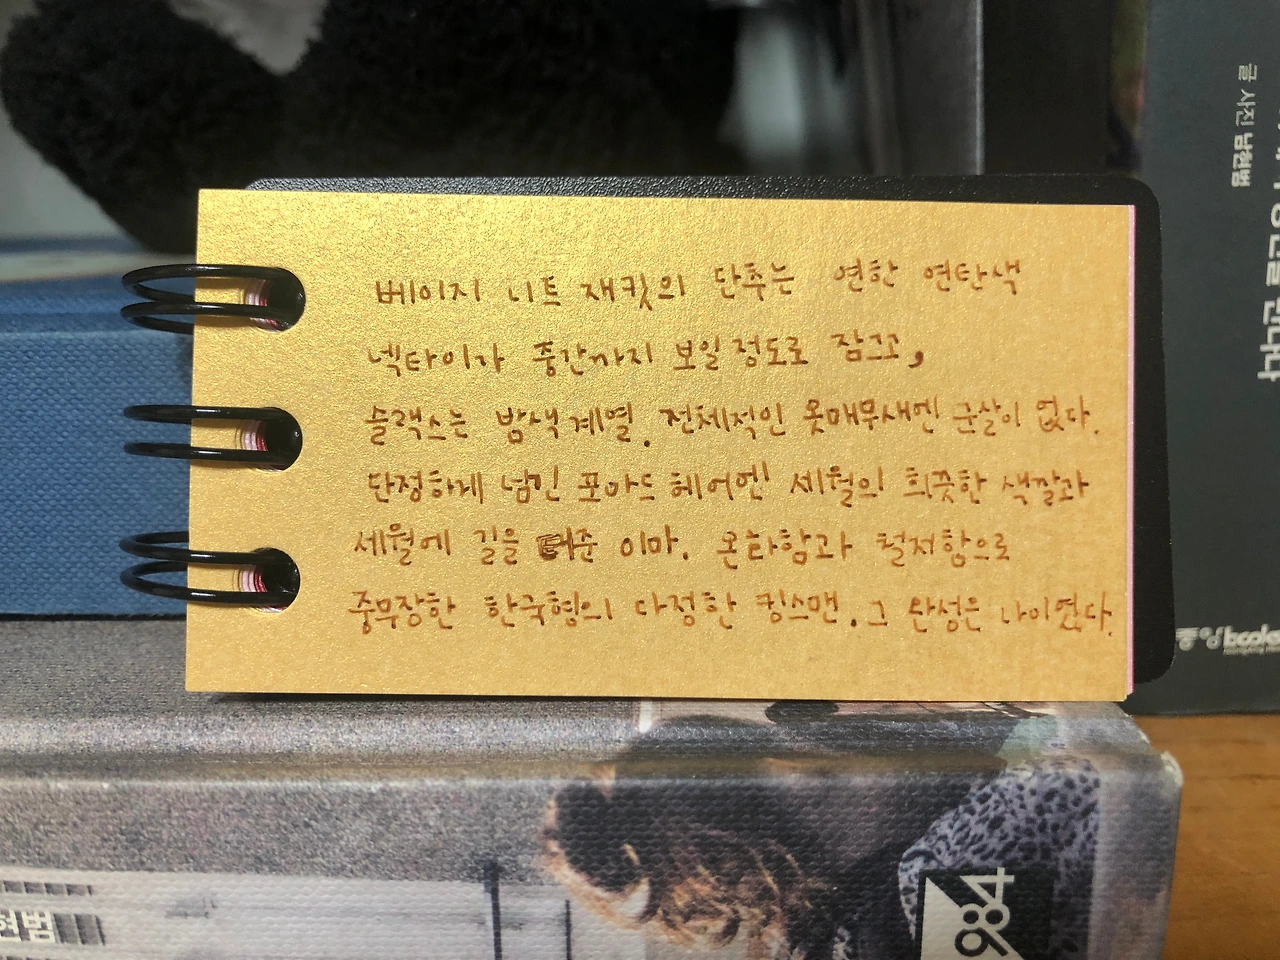 베이지 니트 재킷의 단추는 연한 연탄색
넥타이가 중간까지 보일 정도로 잠그고,
슬랙스는 밤색 계열. 전체적인 옷매무새엔 군살이 없다.
단정하게 넘긴 포마드 헤어엔 세월의 희끗한 색깔과
세월에 길을 터준 이마. 온화함과 철저함으로
중무장한 한국형의 다정한 킹스맨. 그 완성은 나이였다.
글 사진 남현범
중앙books
984